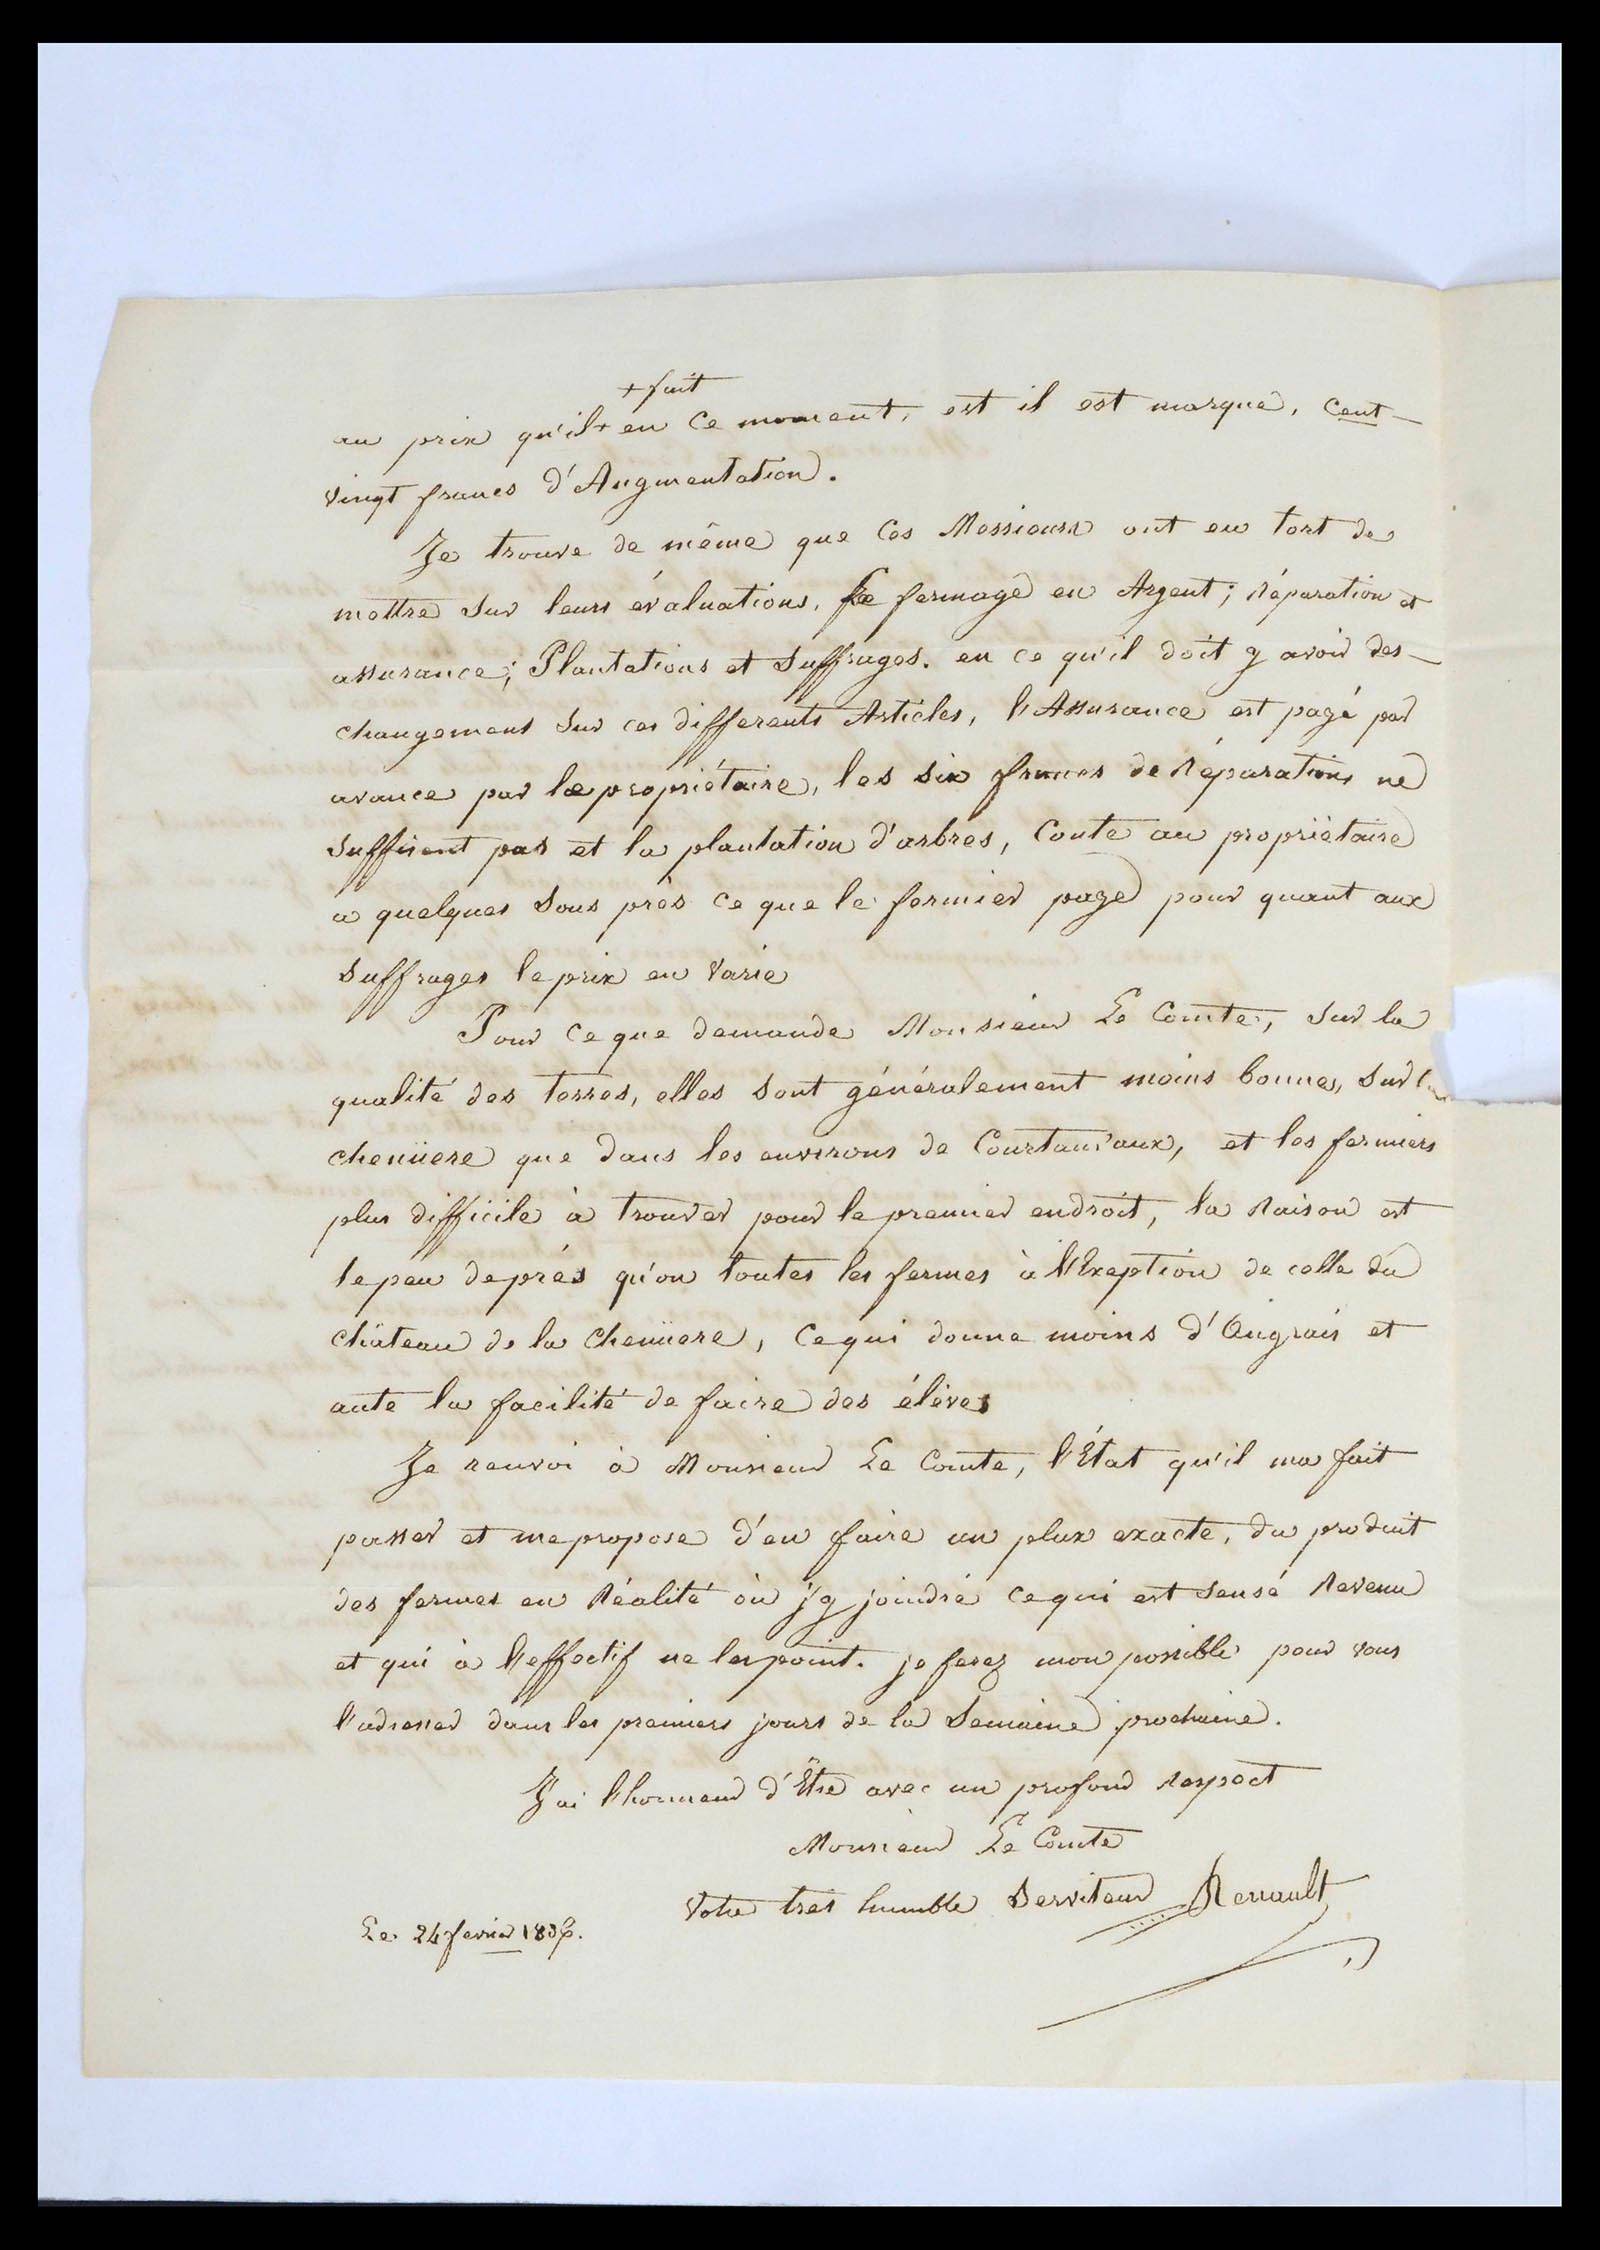 + fait
au prix qu'il + en ce moment, est il est marqué, cent
vingt francs d'Augmentation.
Je trouve de même que Ces Messieurs ont eu tort de
mettre sur leurs évaluations, le fermage en Argent; Réparation et
assurance; Plantations et Suffrages. en ce qu'il doit y avoir des
changemens sur ces differents Articles, l'Assurance est payé par
avance par le propriétaire, les six francs de Réparations ne
suffisent pas et la plantation d'arbres, Coute au propriètaire
a quelques sous près ce que le fermier paye pour quant aux
suffrages le prix en varie
Pour ce que demande Monsieur Le Comte, sur la
qualité des terres, elles sont généralement moins bonnes, sur
cheniiere que dans les environs de Courtanvaux, et les fermiers
plus difficile à trouver pour le premier endroit, la Raison est
le peu de prés qu'on toutes les fermes à l'Exeption de celle du
château de la Cheniiere, ce qui donne moins d'Engrais et
aute la facilité de faire des éléves
Je renvoi à Monsieur Le Comte, l'État qu'il ma fait
passer et me propose d'en faire un plux exacte, du produit
des fermes en Réalité où j'y joindré ce qui est sensé Revenu
et qui à l'effectif ne les point. je ferez mon possible pour vous
l'adresser dans les premiers jours de la Semaine prochaine.
J'ai l'honneur d'Être avec un profond Respect
Monsieur Le Comte
Votre tres humble Serviteur Renault
Le 24 fevrier